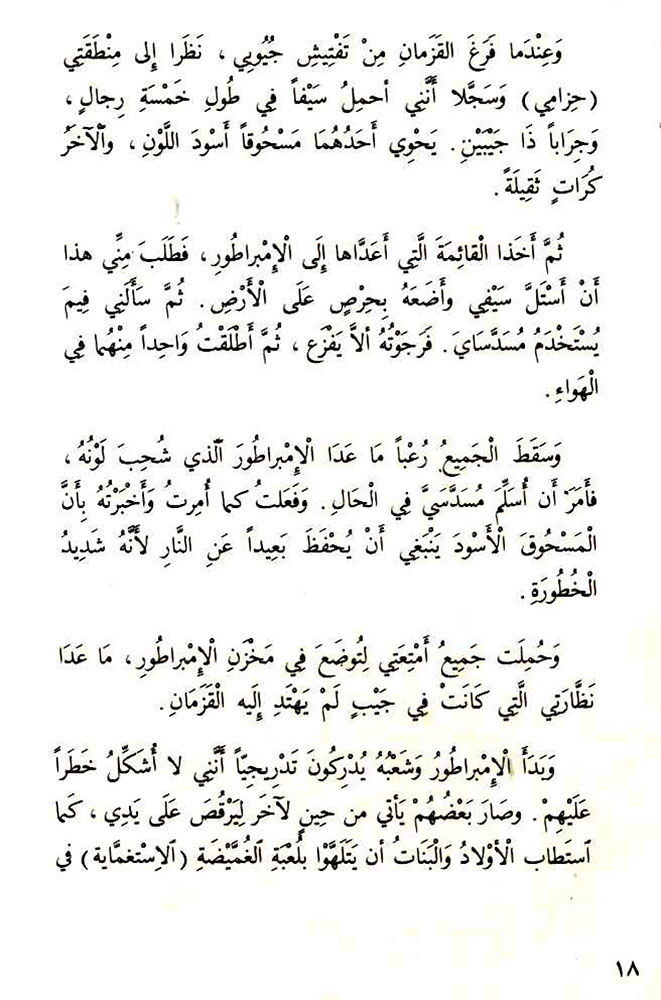 وَعِنْدَما فَرَغَ القَزَمانِ مِنْ تَفْتِيشِ جُيُوبِي ، نَظَرا إلى مِنْطَقَتِي
(حِزامِي) وَسَجَّلا أَنَّنِي أحمِلُ سَيْفاً فِي طُولِ خَمْسَةِ رِجالٍ ،
وَجِرَاباً ذَا جَيْبَيْنِ . يَحْوِي أَحَدُهُمَا مَسْحُوقاً أَسْوَدَ اللَّوْنِ ، وَٱلْآخَرُ
كُرَاتٍ ثَقِيلَةً .
ثُمَّ أَخَذا الْقائِمَةَ الَّتِي أَعَدَّاها إِلَى الْإِمْبراطُورِ ، فَطَلَبَ مِنِّي هذا
أَنْ أَسْتَلَّ سَيْفِي وأَضَعَهُ بِحِرْصٍ عَلَى الْأَرْضِ . ثُمَّ سَأَلَنِي فِيمَ
يُسْتَخْدَمُ مُسَدَّسَايَ . فَرَجَوْتُهُ ألاَّ يَفْزَع ، ثُمَّ أَطْلَقْتُ وَاحِداً مِنْهُما فِي
الْهَواءِ .
وَسَقَطَ الْجَمِيعُ رُعْباً مَا عَدَا الْإِمْبراطُورَ ٱلَّذي شُحِبَ لَوْنُهُ ،
فأَمَرَ أن أُسَلِّمَ مُسَدَّسَيَّ فِي الْحَالِ . وَفَعَلتُ كما أُمِرتُ وَأَخْبَرْتُهُ بِأَنَّ
الْمَسْحُوقَ الْأَسْودَ يَنْبَغِي أَنْ يُحْفَظَ بَعِيداً عَنِ النَّارِ لأَنَّهُ شَدِيدُ
الْخُطُورَةِ .
وَحُمِلَت جَمِيعُ أَمْتِعَتِي لِتُوضَعَ فِي مَخْزَنِ الْإِمْبراطُورِ ، مَا عَدَا
نَظَّارَتِي الَّتِي كَانَتْ فِي جَيْبٍ لَمْ يَهْتَدِ إِلَيه الْقَزَمَانِ .
وَبَدَأَ الْإِمْبراطُورُ وَشَعْبُهُ يُدْرِكُونَ تَدْرِيجِيّاً أَنَّنِي لا أُشَكِّلُ خَطَراً
عَلَيْهِمْ . وصَارَ بَعْضُهُمْ يَأتي من حِينٍ لآخَرَ لِيَرْقُصَ عَلَى يَدِي ، كَما
ٱستَطاب الْأوْلادُ وَالْبَنَاتُ أن يَتَلَهَّوْا بِلُعْبَةِ ٱلغُمَّيْضَةِ (ٱلاِسْتغمَّاية) في
١٨